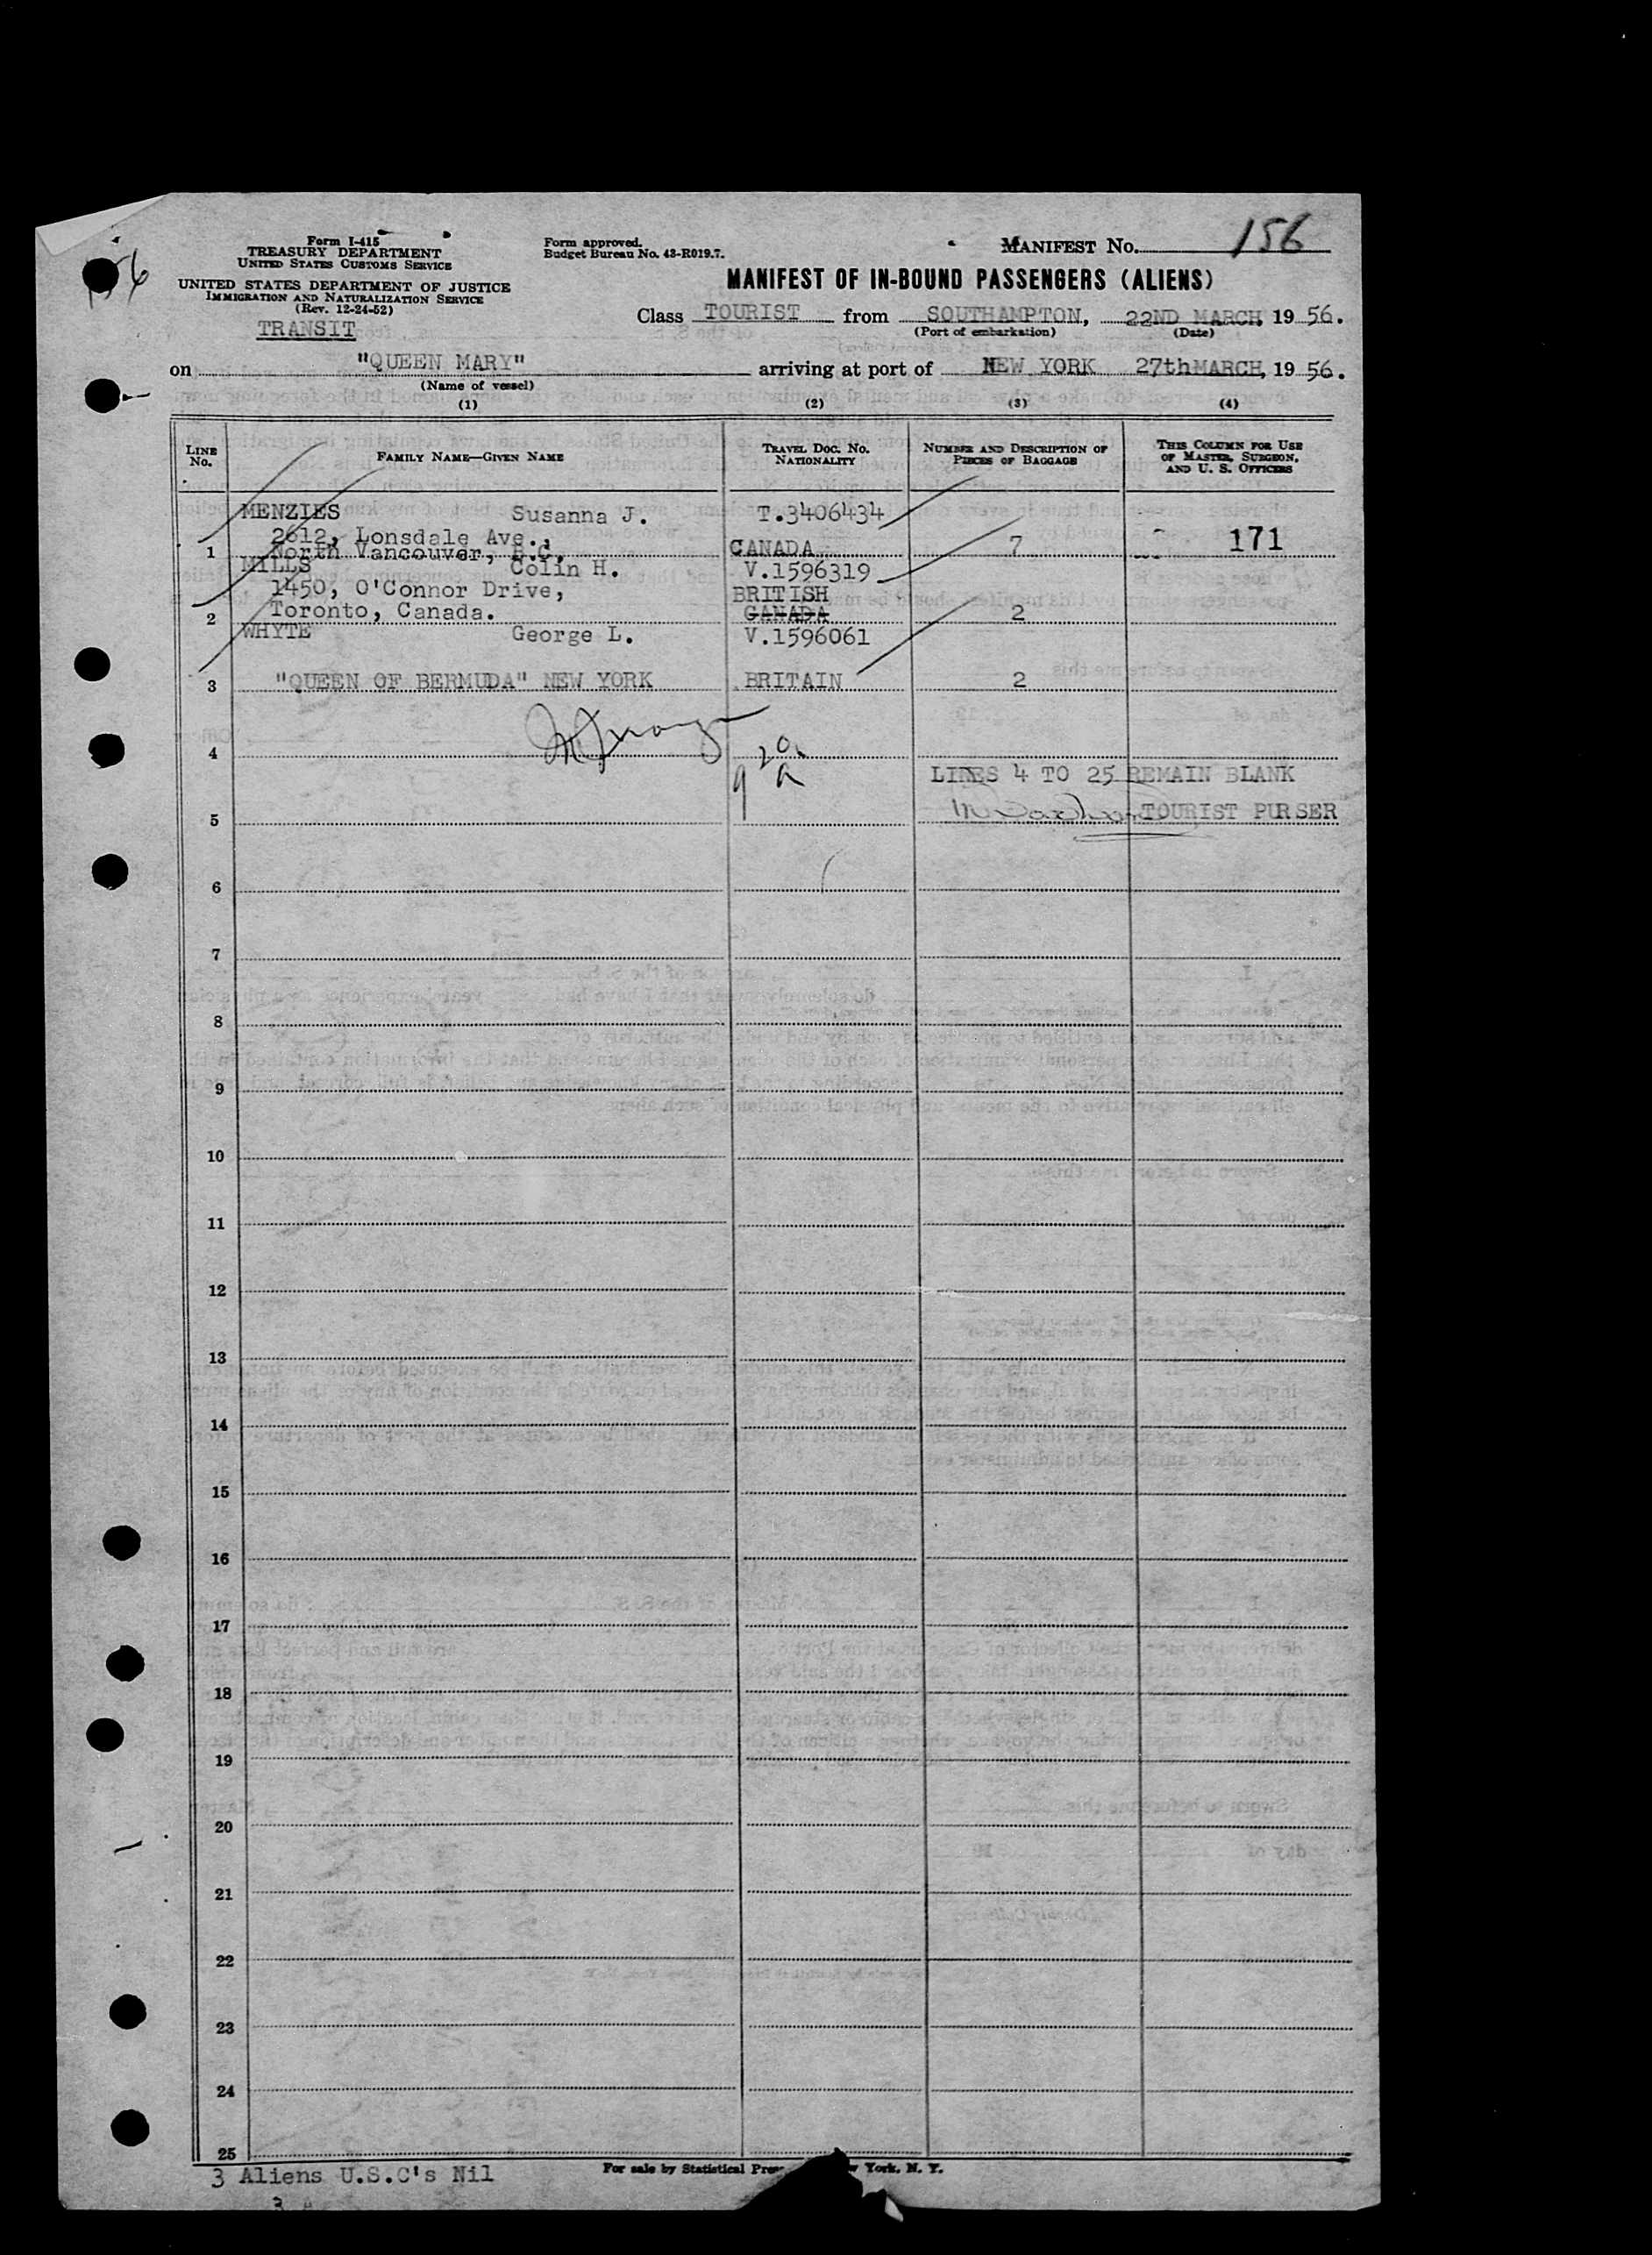 Form I-415
TREASURY DEPARTMENT
UNITED STATES CUSTOMS SERVICE
UNITED STATES DEPARTMENT OF JUSTICE
IMMIGRATION AND NATURALIZATION SERVICE
(Rev. 12-24-52)
TRANSIT
Form approved.
Budget Bureau No. 43-R019.7.
MANIFEST No. 156
156
MANIFEST OF IN-BOUND PASSENGERS (ALIENS)
Class TOURIST from SOUTHAMPTON, 22ND MARCH, 19 56.
(Port of embarkation) (Date)
on "QUEEN MARY" arriving at port of NEW YORK 27thMARCH, 19 56.
(Name of vessel)
(1) (2) (3) (4)
LINE No. FAMILY NAME—GIVEN NAME TRAVEL DOC. No. NATIONALITY NUMBER AND DESCRIPTION OF PIECES OF BAGGAGE THIS COLUMN FOR USE OF MASTER, SURGEON, AND U. S. OFFICERS
MENZIES Susanna J. T.3406434
2612, Lonsdale Ave.,
1 North Vancouver, B.C. CANADA 7 171
MILLS Colin H. V.1596319
1450, O'Connor Drive, BRITISH
2 Toronto, Canada. CANADA 2
WHYTE George L. V.1596061
3 "QUEEN OF BERMUDA" NEW YORK BRITAIN 2
4
LINES 4 TO 25 REMAIN BLANK
5 TOURIST PURSER
6
7
8
9
10
11
12
13
14
15
16
17
18
19
20
21
22
23
24
25
3 Aliens U.S.C's Nil
For sale by Statistical York, N. Y.